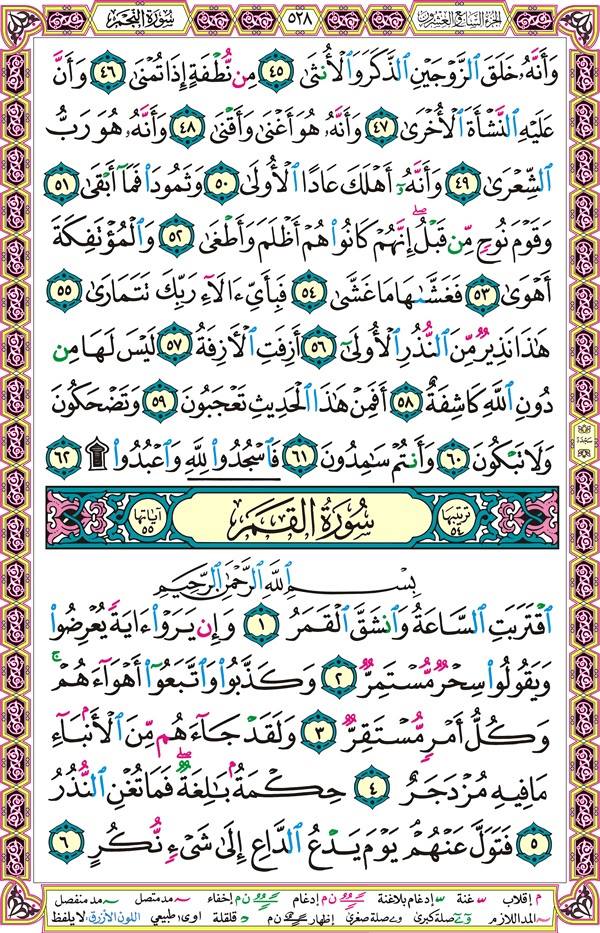 الجزء السابع العشرون ٥٢٨ سورة النجم
وَأَنَّهُۥ خَلَقَ ٱلزَّوْجَيْنِ ٱلذَّكَرَ وَٱلْأُنثَىٰ ٤٥ مِن نُّطْفَةٍ إِذَا تُمْنَىٰ ٤٦ وَأَنَّ
عَلَيْهِ ٱلنَّشْأَةَ ٱلْأُخْرَىٰ ٤٧ وَأَنَّهُۥ هُوَ أَغْنَىٰ وَأَقْنَىٰ ٤٨ وَأَنَّهُۥ هُوَ رَبُّ
ٱلشِّعْرَىٰ ٤٩ وَأَنَّهُۥٓ أَهْلَكَ عَادًا ٱلْأُولَىٰ ٥٠ وَثَمُودَا۟ فَمَآ أَبْقَىٰ ٥١
وَقَوْمَ نُوحٍ مِّن قَبْلُ ۖ إِنَّهُمْ كَانُوا۟ هُمْ أَظْلَمَ وَأَطْغَىٰ ٥٢ وَٱلْمُؤْتَفِكَةَ
أَهْوَىٰ ٥٣ فَغَشَّىٰهَا مَا غَشَّىٰ ٥٤ فَبِأَىِّ ءَالَآءِ رَبِّكَ تَتَمَارَىٰ ٥٥
هَٰذَا نَذِيرٌ مِّنَ ٱلنُّذُرِ ٱلْأُولَىٰٓ ٥٦ أَزِفَتِ ٱلْـَٔازِفَةُ ٥٧ لَيْسَ لَهَا مِن
دُونِ ٱللَّهِ كَاشِفَةٌ ٥٨ أَفَمِنْ هَٰذَا ٱلْحَدِيثِ تَعْجَبُونَ ٥٩ وَتَضْحَكُونَ
وَلَا تَبْكُونَ ٦٠ وَأَنتُمْ سَٰمِدُونَ ٦١ فَٱسْجُدُوا۟ لِلَّهِ وَٱعْبُدُوا۟ ۩ ٦٢
سجدة
ترتيبها ٥٤ سُورَةُ القَمَرِ آياتها ٥٥
بِسْمِ ٱللَّهِ ٱلرَّحْمَٰنِ ٱلرَّحِيمِ
ٱقْتَرَبَتِ ٱلسَّاعَةُ وَٱنشَقَّ ٱلْقَمَرُ ١ وَإِن يَرَوْا۟ ءَايَةً يُعْرِضُوا۟
وَيَقُولُوا۟ سِحْرٌ مُّسْتَمِرٌّ ٢ وَكَذَّبُوا۟ وَٱتَّبَعُوٓا۟ أَهْوَآءَهُمْ ۚ
وَكُلُّ أَمْرٍ مُّسْتَقِرٌّ ٣ وَلَقَدْ جَآءَهُم مِّنَ ٱلْأَنۢبَآءِ
مَا فِيهِ مُزْدَجَرٌ ٤ حِكْمَةٌۢ بَٰلِغَةٌ ۖ فَمَا تُغْنِ ٱلنُّذُرُ
٥ فَتَوَلَّ عَنْهُمْ ۘ يَوْمَ يَدْعُ ٱلدَّاعِ إِلَىٰ شَىْءٍ نُّكُرٍ ٦
م إقلاب غنة إدغام بلاغنة ن م إدغام ن م إخفاء مد متصل مد منفصل
المد اللازم صلة كبرى صلة صغرى إظهار ن م قلقلة اوى طبيعي اللون الأزرق: لا يلفظ